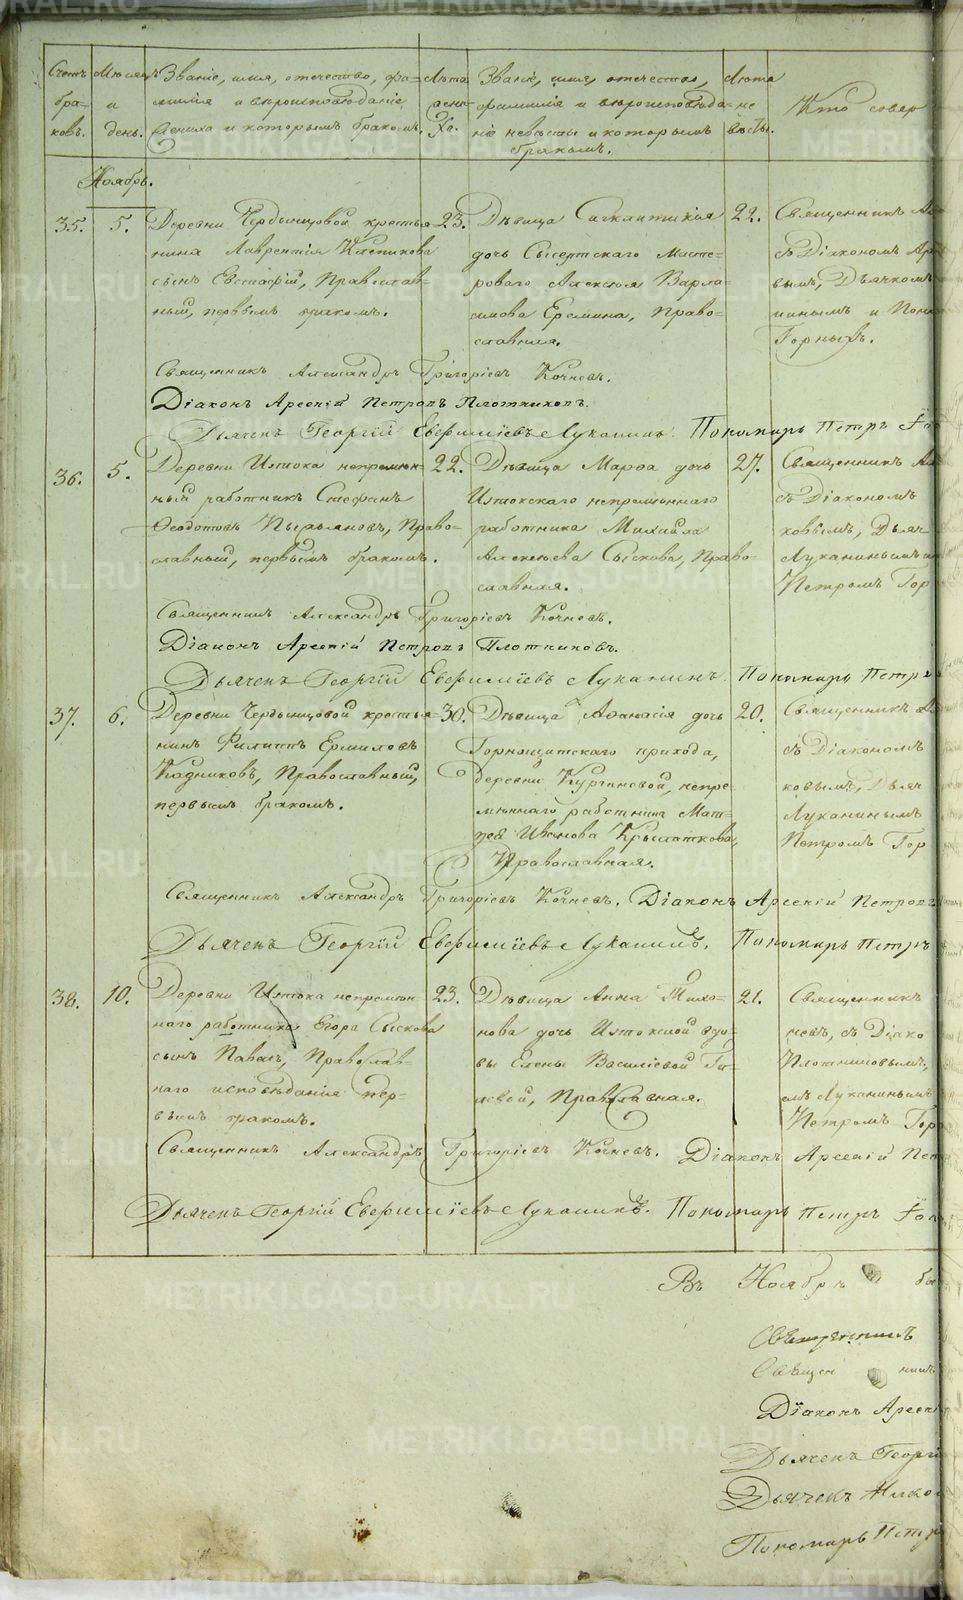 Счетъ браковъ.
Мѣсяцъ и день.
Званіе, имя, отечество, фамилія и вѣроисповѣданіе жениха и которымъ бракомъ.
Лѣта жениха.
Званіе, имя, отечество, фамилія и вѣроисповѣданіе невѣсты и которымъ бракомъ.
Лѣта невѣсты.
Кто совер
Ноябрь.
35. 5.
Деревни крестья-
нина Лаврентія
сынъ Евстафій, Православ-
ный, первымъ бракомъ.
23.
Дѣвица
дочь Сысертскаго Масте-
роваго Алексѣя Варла-
мова Еремина, Право-
славная.
22.
Священникъ
съ Діакономъ
вымъ, Дьячкомъ
нинымъ и Поно
Горныхъ.
Священникъ Александръ Григоріевъ Кочневъ.
Діаконъ Арсеній Петровъ Плотниковъ.
Дьячекъ Георгій Евфиміевъ Луканинъ. Пономарь Петръ
36. 5.
Деревни Истока непремѣн-
ный работникъ Стефанъ
Ѳеодотовъ Право-
славный, первымъ бракомъ.
22.
Дѣвица Марѳа дочь
Истокскаго непремѣннаго
работника Михаила
Алексѣева Сыскова, Право-
славная.
27.
Священникъ
съ Діакономъ
ковымъ, Дьяч
Луканинымъ
Петромъ Гор
Священникъ Александръ Григоріевъ Кочневъ.
Діаконъ Арсеній Петровъ Плотниковъ.
Дьячекъ Георгій Евфиміевъ Луканинъ. Пономарь Петръ
37. 6.
Деревни крестья-
нинъ Филиппъ Ермиловъ
Кадниковъ, Православный,
первымъ бракомъ.
30.
Дѣвица Аѳанасія дочь
Горнощитскаго прихода,
деревни Кургановой, непре-
мѣннаго работника Мат-
ѳея Иванова Крылаткова,
Православная.
20.
Священникъ
съ Діакономъ
ковымъ, Дьяч
Луканинымъ
Петромъ Гор
Священникъ Александръ Григоріевъ Кочневъ. Діаконъ Арсеній Петровъ
Дьячекъ Георгій Евфиміевъ Луканинъ. Пономарь Петръ
38. 10.
Деревни Истока непремѣн-
наго работника Егора Сыскова
сынъ Павелъ, Православ-
наго исповѣданія пер-
вымъ бракомъ.
23.
Дѣвица Анна Тихо-
нова дочь Истокской вдо-
вы Елены Василіевой
Православная.
21.
Священникъ
невъ, съ Діако
Плотниковымъ,
омъ Луканинымъ
Петромъ Гор
Священникъ Александръ Григоріевъ Кочневъ. Діаконъ Арсеній Пет
Дьячекъ Георгій Евфиміевъ Луканинъ. Пономарь Петръ
Въ Ноябрѣ
Священникъ
Священникъ
Діаконъ Арсен
Дьячекъ Георгі
Дьячекъ Никол
Пономарь Петр
METRIKI.GASO-URAL.RU